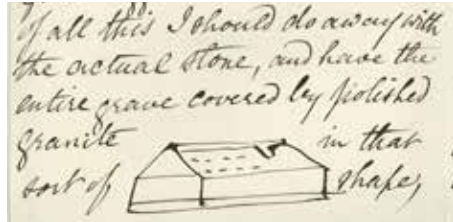 of all this I should do away with
the actual stone, and have the
entire grave covered by polished
granite in that
sort of shape,